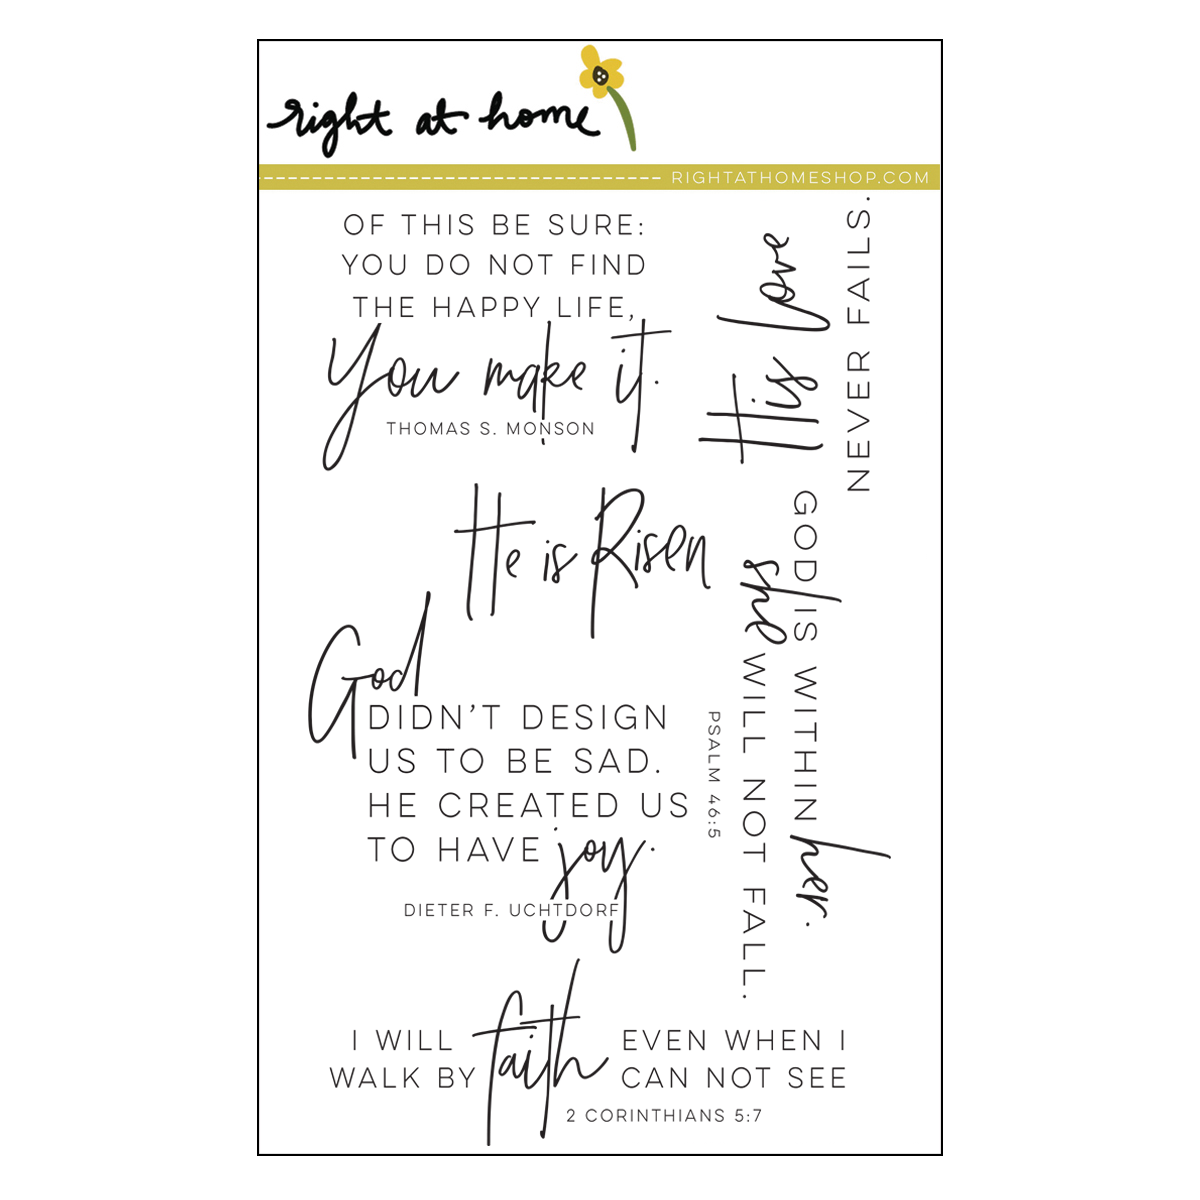 right at home
RIGHTATHOMESHOP.COM
OF THIS BE SURE:
YOU DO NOT FIND
THE HAPPY LIFE,
You make it.
THOMAS S. MONSON
His love
NEVER FAILS.
He is Risen
GOD IS WITHIN her.
she WILL NOT FALL.
PSALM 46:5
God
DIDN'T DESIGN
US TO BE SAD.
HE CREATED US
TO HAVE joy.
DIETER F. UCHTDORF
I WILL
WALK BY faith
EVEN WHEN I
CAN NOT SEE
2 CORINTHIANS 5:7